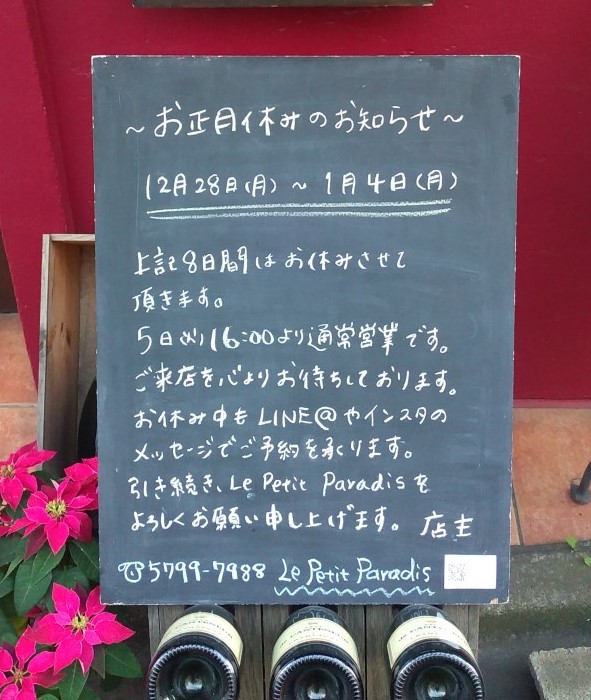 ～お正月休みのお知らせ～
12月28日(月)～1月4日(月)
上記8日間はお休みさせて
頂きます。
5日(火)16:00より通常営業です。
ご来店を心よりお待ちしております。
お休み中もLINE@やインスタの
メッセージでご予約を承ります。
引き続き、Le Petit Paradisを
よろしくお願い申し上げます。 店主
☎5799-7988 Le Petit Paradis